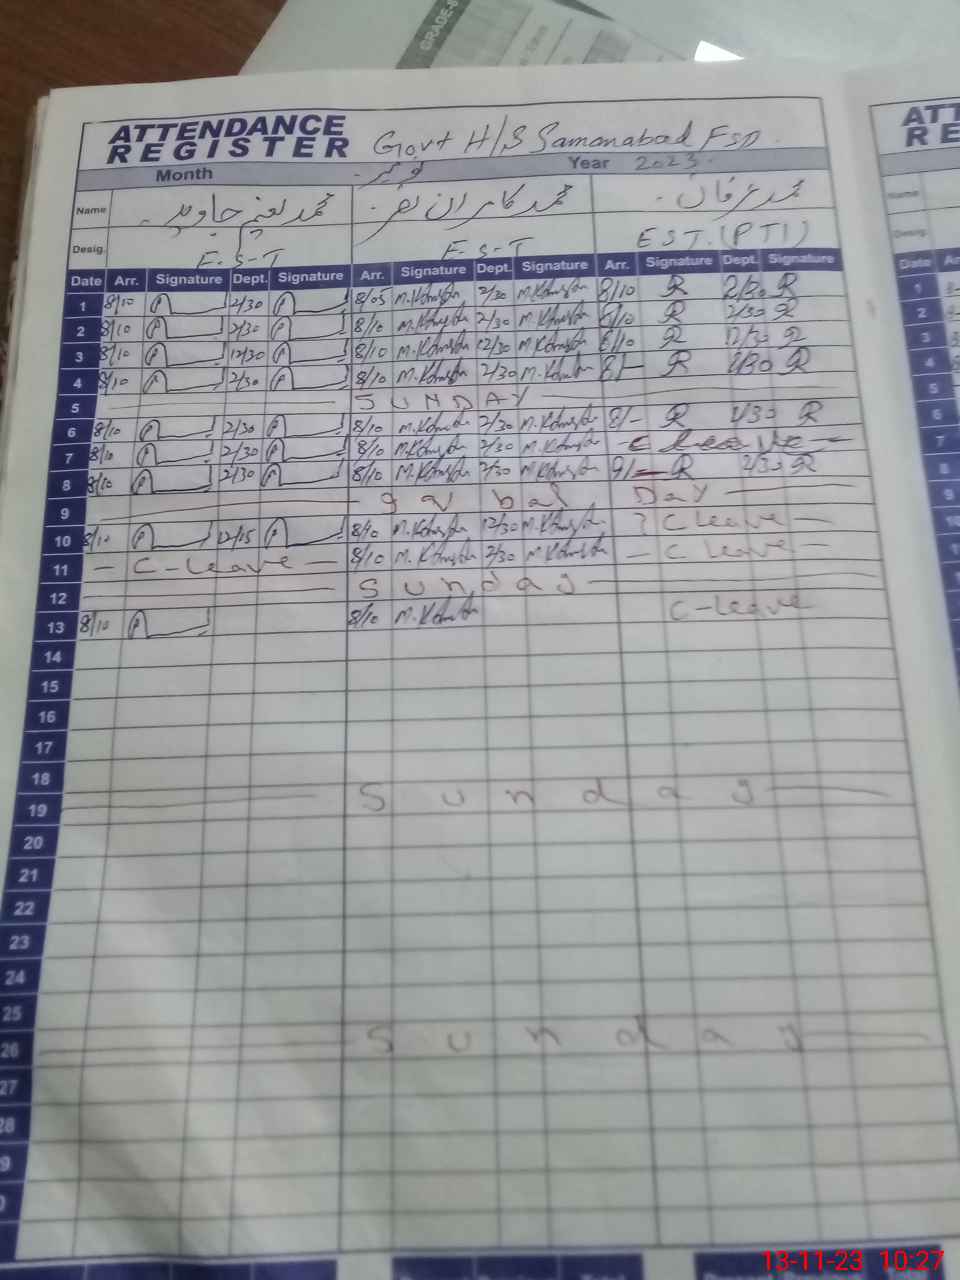 GRADE-8
ATTENDANCE REGISTER Govt H/S Samanabad FSD.
Month نومبر Year 2023.
Name محمد کامران محمد عرفان
Desig. E.S-T E.S-T EST.(PTI)
Date Arr. Signature Dept. Signature Arr. Signature Dept. Signature Arr. Signature Dept. Signature
1 8/10 2/30 8/05 M.Kamran 2/30 M.Kamran 8/10 R 2/30 R
2 8/10 2/30 8/10 M.Kamran 2/30 M.Kamran 8/10 R 2/30 R
3 8/10 12/30 8/10 M.Kamran 12/30 M.Kamran 8/10 R 12/30 R
4 8/10 2/30 8/10 M.Kamran 2/30 M.Kamran 8/- R 2/30 R
5 SUNDAY
6 8/10 2/30 8/10 M.Kamran 2/30 M.Kamran 8/- R 2/30 R
7 8/10 2/30 8/10 M.Kamran 2/30 M.Kamran - C leave -
8 8/10 2/30 8/10 M.Kamran 2/30 M.Kamran 9/- R 2/30 R
9 - Iqbal Day -
10 8/10 12/15 8/10 M.Kamran 12/30 M.Kamran C leave -
11 - C-leave - 8/10 M.Kamran 2/30 M.Kamran - C leave -
12 Sunday
13 8/10 8/10 M.Kamran C-leave
14
15
16
17
18
19 Sunday
20
21
22
23
24
25
26 Sunday
27
28
9
0
ATT
RE
Name
Desig.
Date
1
2
3
4
5
6
7
8
9
10
13-11-23 10:27